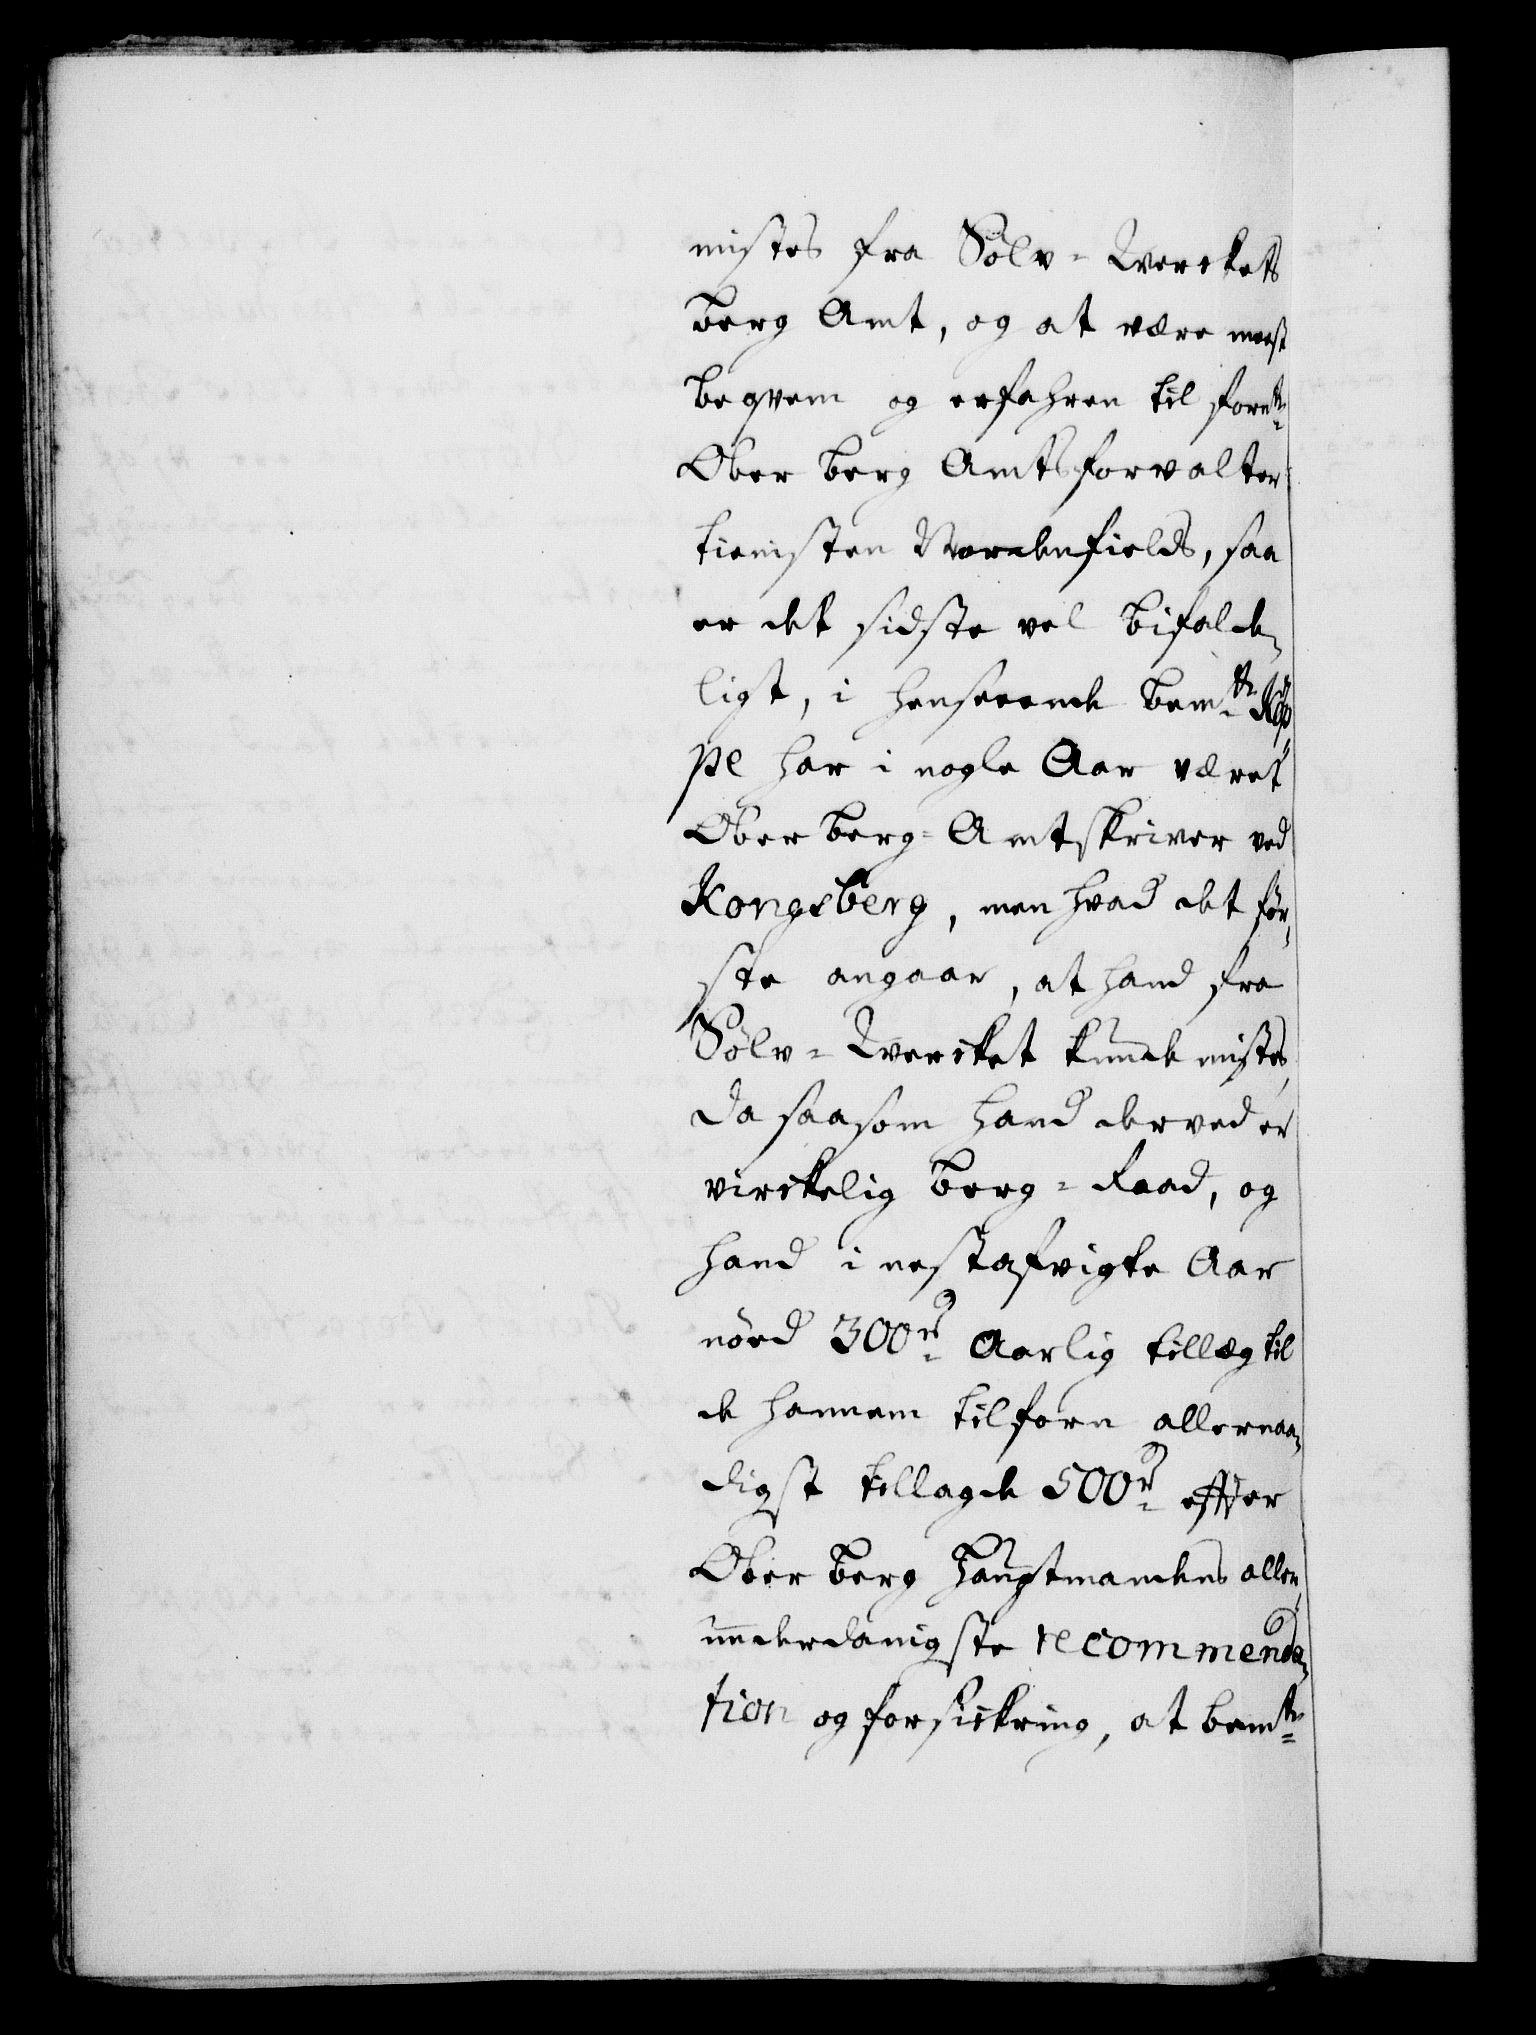 mistes fra Sølv-Werckets
berg Amt, og at være meest
beqvem og erfahren til forn.te
Ober berg Amtsforvalter
tienisten Nordenfields, saa
er det sidste vel bifalde,
ligt, i henseende bem.te Köp,
pe har i nogle Aar været
Ober berg-Amtskriver ved
Kongsberg, men hvad det før,
ste angaar, at hand fra
Sølv-Wercket kunde mistes,
da saasom hand derved er
virckelig berg-Raad, og
hand i nestafvigte Aar
nöed 300 rd Aarlig tillæg til
de hannem tilforn allernaa,
digst tillagde 500 rd efter
Ober berg Haubtmandens aller,
underdanigste recommenda,
tion og forsickring, at bem.te